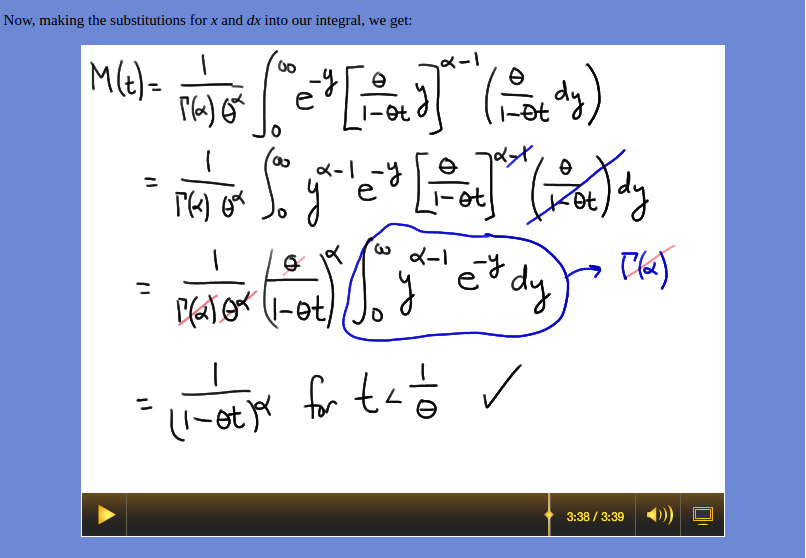 Now, making the substitutions for x and dx into our integral, we get:
M(t) = 1/(Γ(α) θ^α) ∫_0^∞ e^{-y} [θ/(1-θt) y]^{α-1} (θ/(1-θt) dy)
= 1/(Γ(α) θ^α) ∫_0^∞ y^{α-1} e^{-y} [θ/(1-θt)]^{α-1} (θ/(1-θt)) dy
= 1/(Γ(α) θ^α) (θ/(1-θt))^α ∫_0^∞ y^{α-1} e^{-y} dy → Γ(α)
= 1/(1-θt)^α for t < 1/θ ✓
3:38 / 3:39